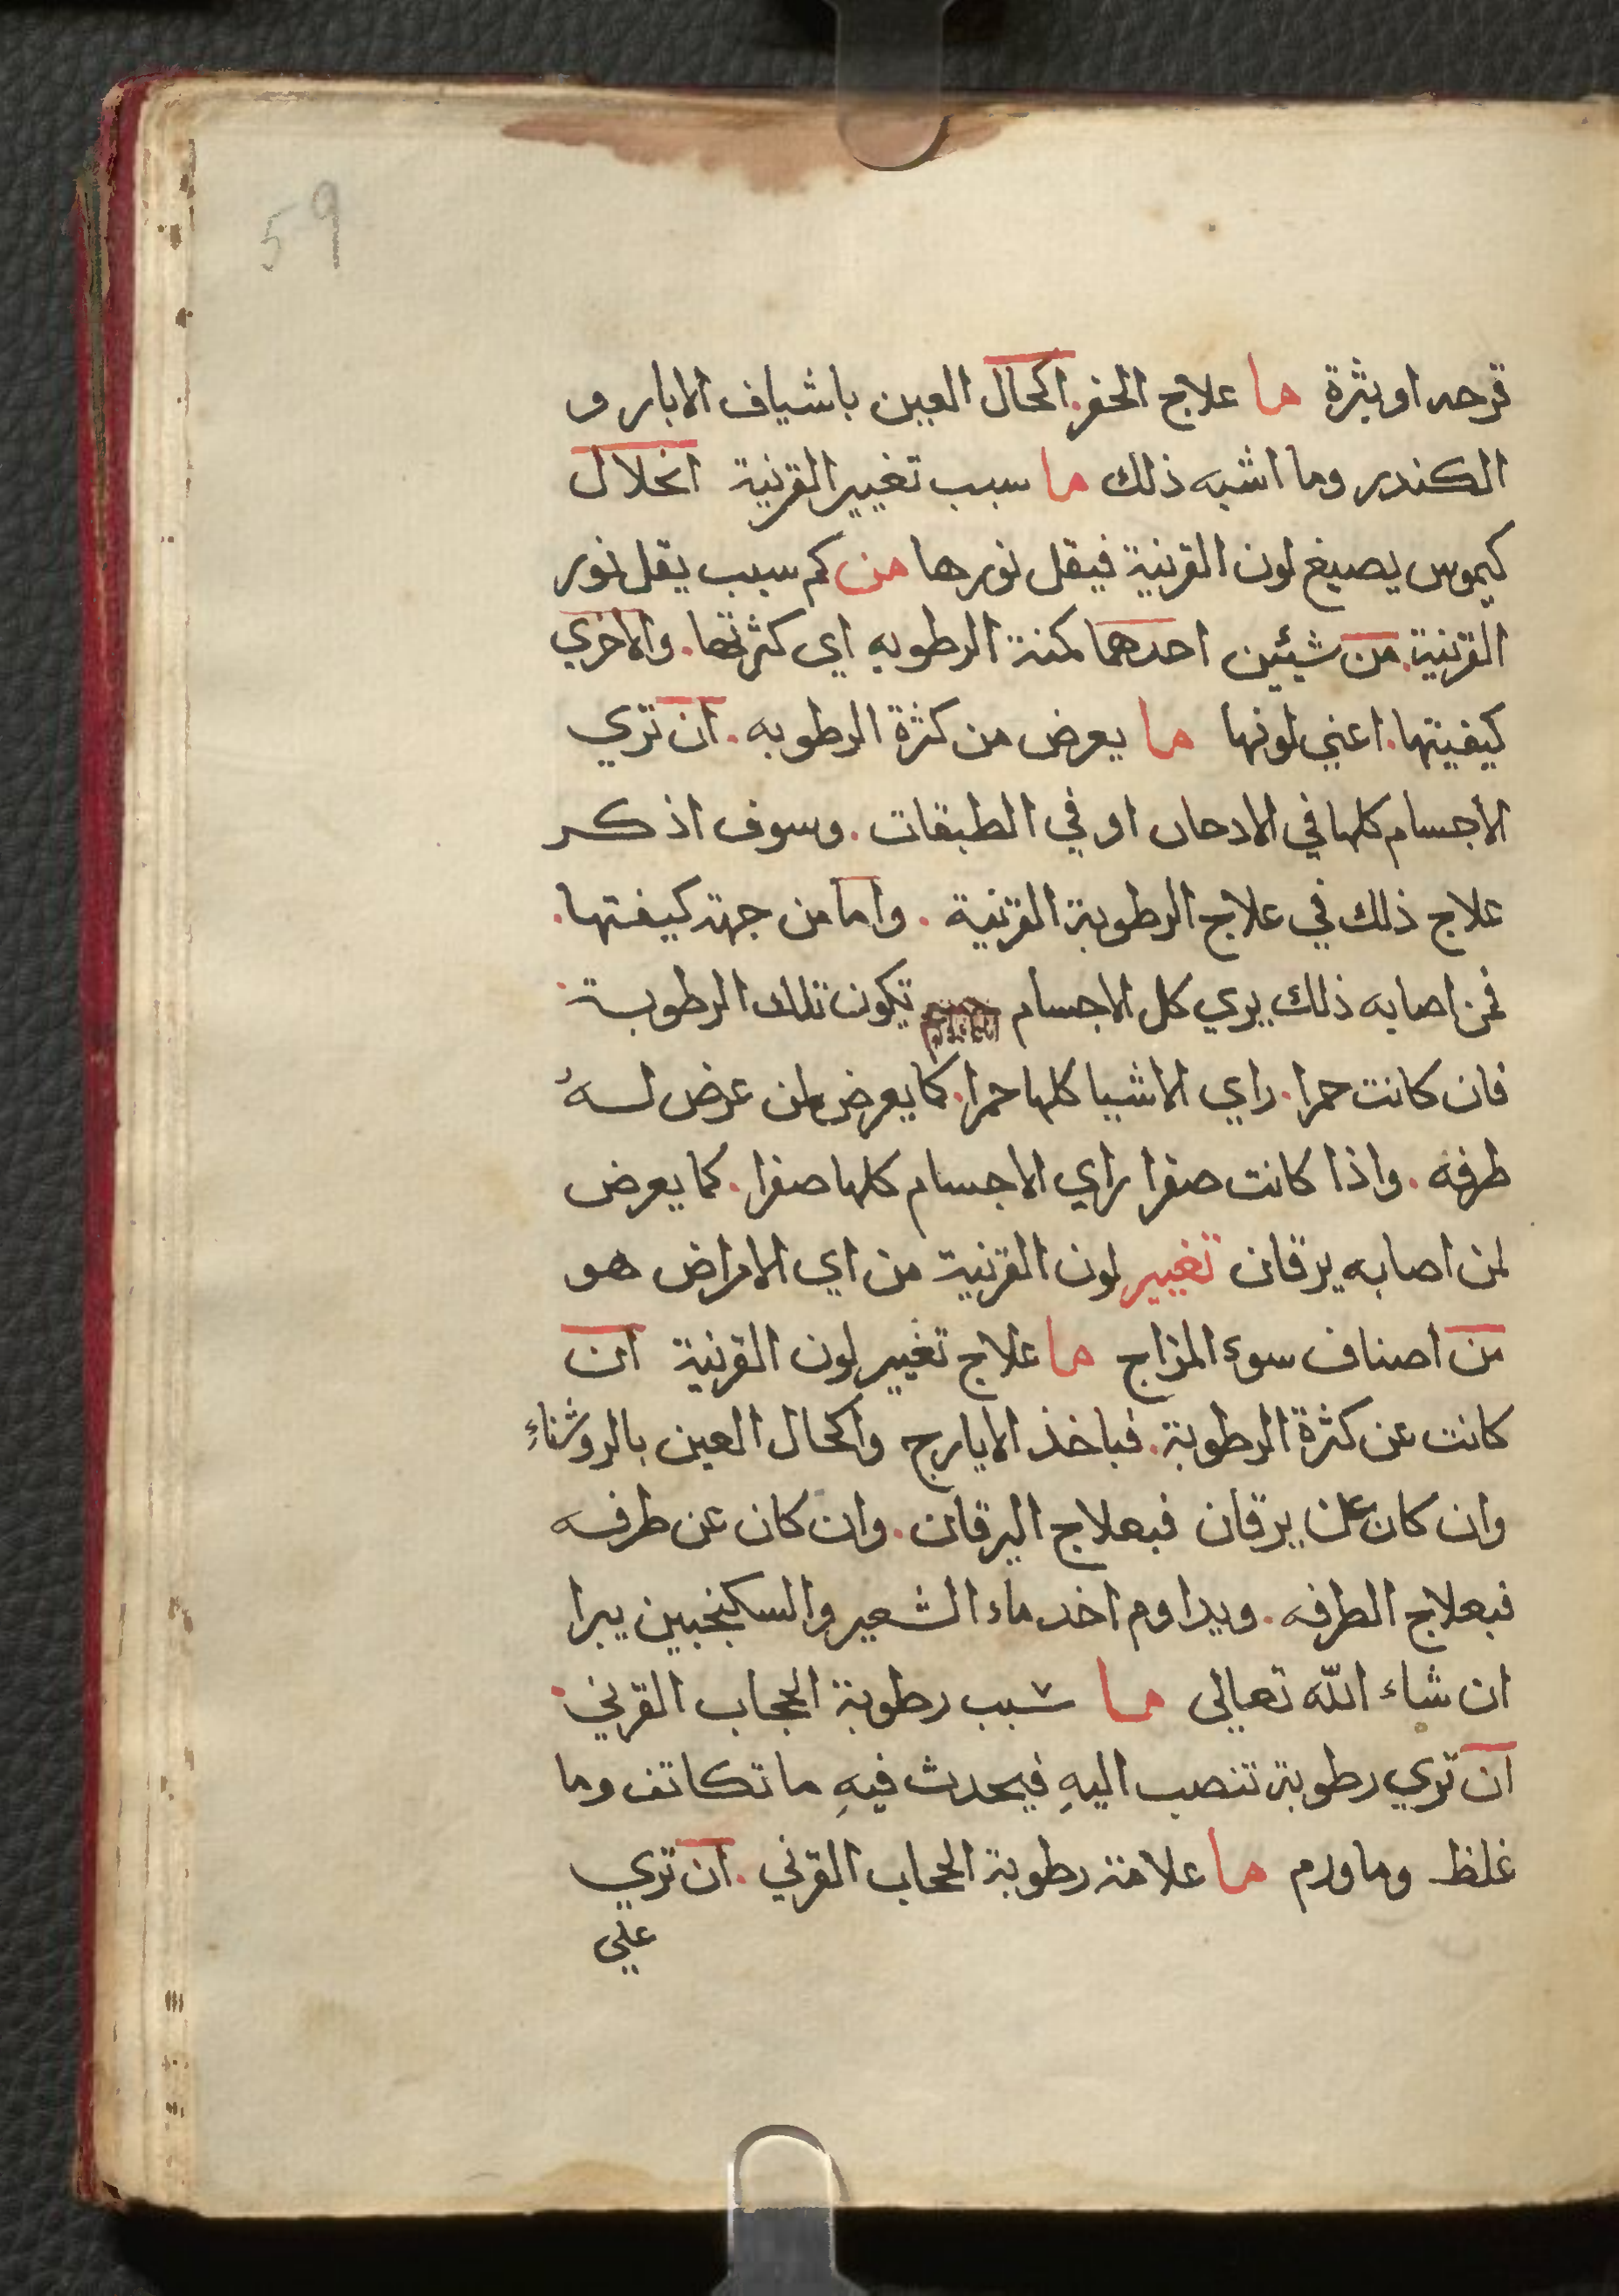 59
قرحه او بثرة ما علاج الحفر. اكحال العين باشياف الابار و
الكندر وما اشبه ذلك ما سبب تغيير القرنية انحلال
كيموس يصبغ لون القرنية فيقل نورها من كم سبب يقل نور
القرنية. من شيئين احدهما كمنة الرطوبه اي كثرتها. والاخري
كيفيتها. اعني لونها ما يعرض من كثرة الرطوبه. ان تري
الاجسام كلها في الادخان او في الطبقات. وسوف اذكر
علاج ذلك في علاج الرطوبة القرنية. واما من جهة كيفتها.
فمن اصابه ذلك يري كل الاجسام تكون تلك الرطوبة.
فان كانت حمرا. راي الاشيا كلها حمرا. كما يعرض لمن عرض لهُ
طرفه. واذا كانت صفرا راي الاجسام كلها صفرا. كما يعرض
لمن اصابه يرقان تغيير لون القرنية من اي الامراض هو
من اصناف سوء المزاج ما علاج تغيير لون القرنية ان
كانت عن كثرة الرطوبة. فباخذ الايارج واكحال العين بالروشناء
وان كان عن يرقان فبعلاج اليرقان. وان كان عن طرفه
فبعلاج الطرفه. ويداوم اخد ماء الشعير والسكنجبين يبرا
ان شاء الله تعالى ما سبب رطوبة الحجاب القرني.
ان تري رطوبة تنصب اليهِ فيحدث فيهِ ما تكاتف وما
غلظ وما ورم ما علامة رطوبة الحجاب القرني. ان تري
علي